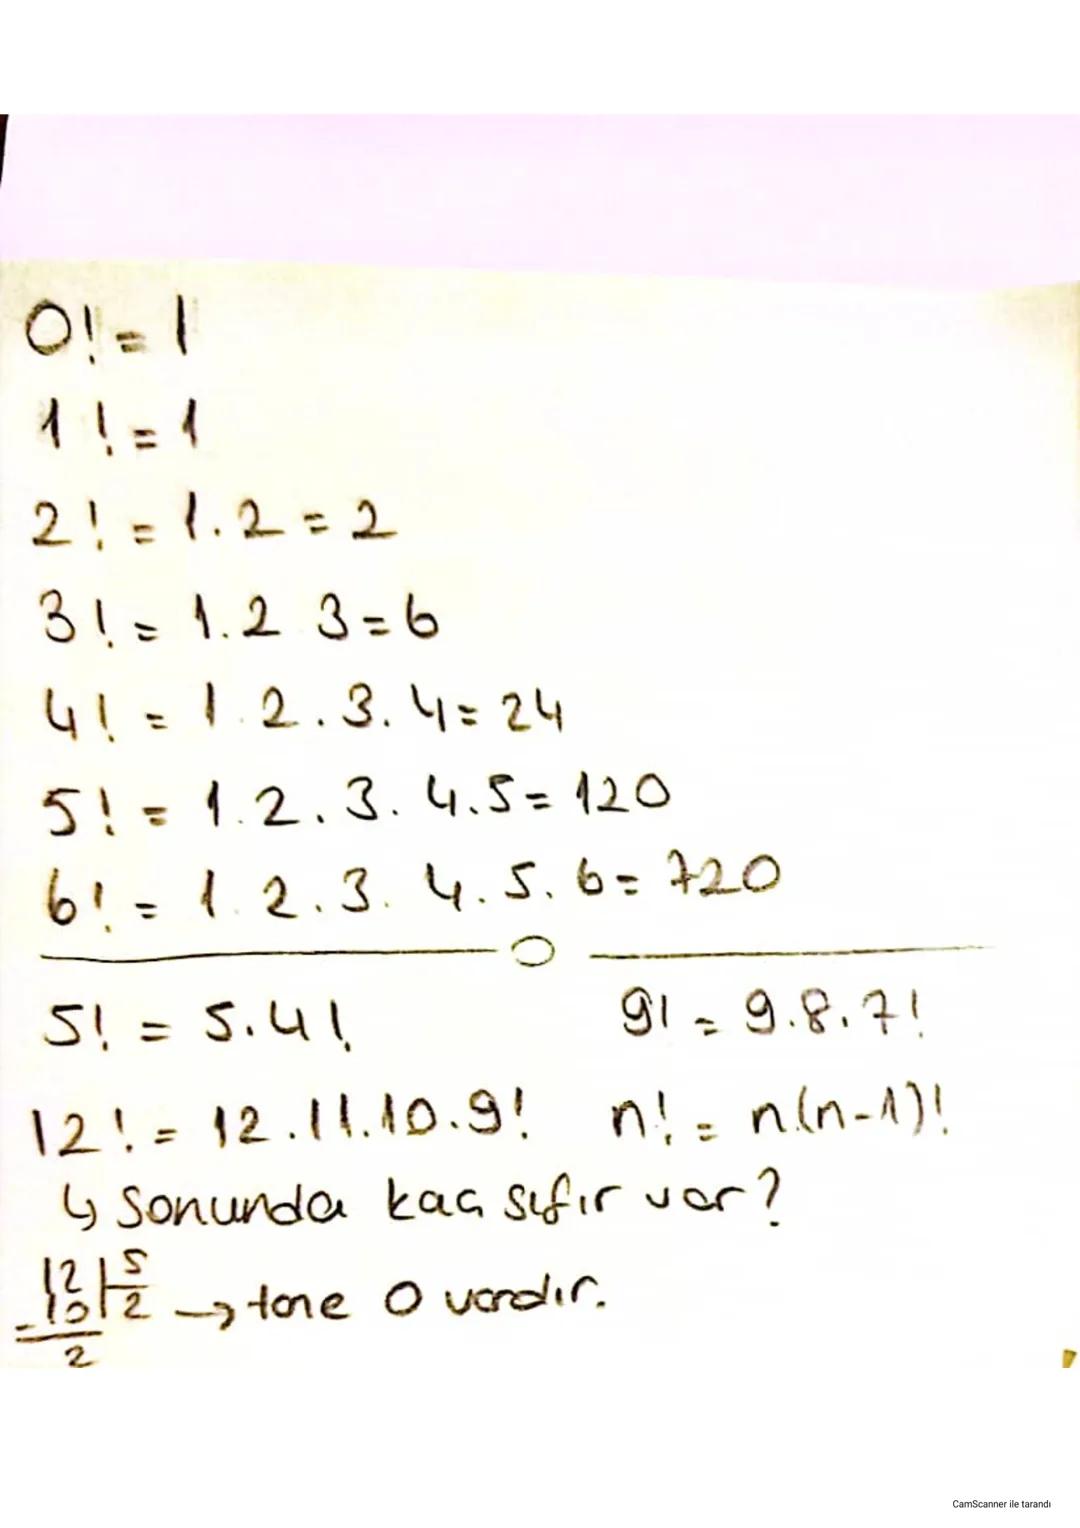 0! = 1
1! = 1
2! = 1.2 = 2
3! = 1.2 3 = 6
4! = 1.2.3.4 = 24
5! = 1.2.3.4.5 = 120
6! = 1.2.3.4.5.6 = 720
5! = 5.4! 9! = 9.8.7!
12! = 12.11.10.9! n! = n(n-1)!
↳ Sonunda kaç sıfır var?
12 | 5
- 10 | 2 → tane 0 vardır.
2
CamScanner ile tarandı